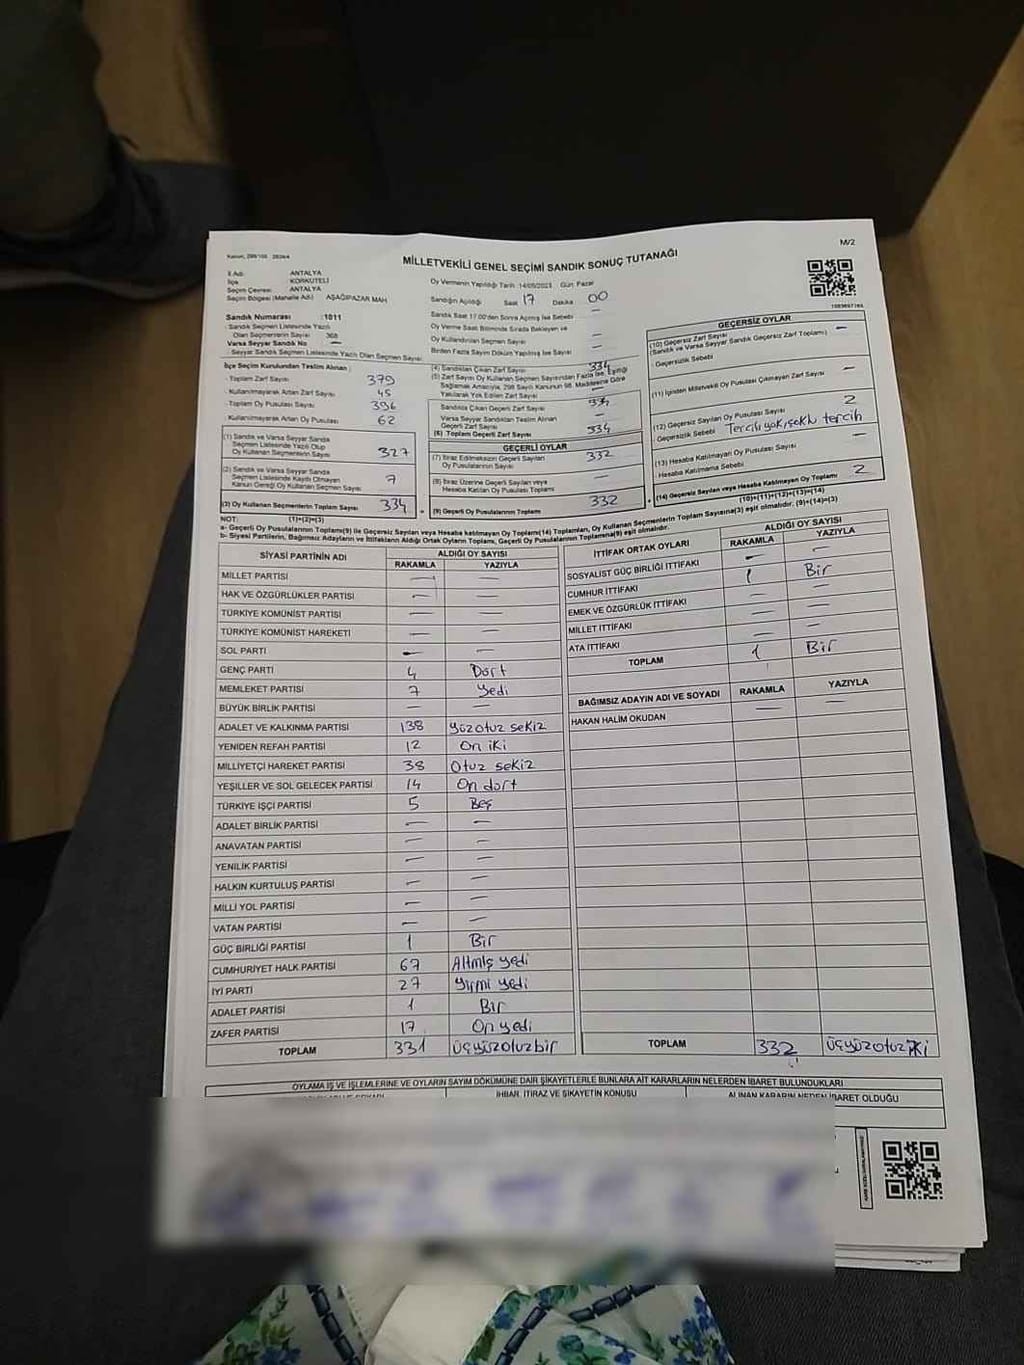 Kanun, 298/105 2839/4
M/2
MİLLETVEKİLİ GENEL SEÇİMİ SANDIK SONUÇ TUTANAĞI
İl Adı: ANTALYA
İlçe KORKUTELİ
Seçim Çevresi: ANTALYA
Seçim Bölgesi (Mahalle Adı) AŞAĞIPAZAR MAH
Sandık Numarası :1011
Sandık Seçmen Listesinde Yazılı
Olan Seçmenlerin Sayısı 368
Varsa Seyyar Sandık No —
Seyyar Sandık Seçmen Listesinde Yazılı Olan Seçmen Sayısı
İlçe Seçim Kurulundan Teslim Alınan :
Toplam Zarf Sayısı 379
Kullanılmayarak Artan Zarf Sayısı 45
Toplam Oy Pusulası Sayısı 396
Kullanılmayarak Artan Oy Pusulası 62
(1) Sandık ve Varsa Seyyar Sandık
Seçmen Listesinde Yazılı Olup
Oy Kullanan Seçmenlerin Sayısı 327
(2) Sandık ve Varsa Seyyar Sandık
Seçmen Listesinde Kaydı Olmayan
Kanun Gereği Oy Kullanan Seçmen Sayısı 7
(3) Oy Kullanan Seçmenlerin Toplam Sayısı 334
(1)+(2)=(3)
Oy Vermenin Yapıldığı Tarih :14/05/2023 Gün :Pazar
Sandığın Açıldığı Saat 17 Dakika 00
Sandık Saat 17.00'den Sonra Açılmış İse Sebebi —
Oy Verme Saati Bitiminde Sırada Bekleyen ve
Oy Kullandırılan Seçmen Sayısı —
Birden Fazla Sayım Döküm Yapılmış İse Sayısı —
(4) Sandıktan Çıkan Zarf Sayısı 334
(5) Zarf Sayısı Oy Kullanan Seçmen Sayısından Fazla İse, Eşitliği
Sağlamak Amacıyla, 298 Sayılı Kanunun 98. Maddesine Göre
Yakılarak Yok Edilen Zarf Sayısı —
Sandıkta Çıkan Geçerli Zarf Sayısı 334
Varsa Seyyar Sandıktan Teslim Alınan
Geçerli Zarf Sayısı —
(6) Toplam Geçerli Zarf Sayısı 334
GEÇERLİ OYLAR
(7) İtiraz Edilmeksizin Geçerli Sayılan
Oy Pusulalarının Sayısı 332
(8) İtiraz Üzerine Geçerli Sayılan veya
Hesaba Katılan Oy Pusulası Toplamı —
(9) Geçerli Oy Pusulalarının Toplamı 332
GEÇERSİZ OYLAR
(10) Geçersiz Zarf Sayısı —
(Sandık ve Varsa Seyyar Sandık Geçersiz Zarf Toplamı)
Geçersizlik Sebebi
(11) İçinden Milletvekili Oy Pusulası Çıkmayan Zarf Sayısı —
(12) Geçersiz Sayılan Oy Pusulası Sayısı 2
Geçersizlik Sebebi
(13) Hesaba Katılmayan Oy Pusulası Sayısı —
Hesaba Katılmama Sebebi
(14) Geçersiz Sayılan veya Hesaba Katılmayan Oy Toplamı 2
(10)+(11)+(12)+(13)=(14)
NOT:
a- Geçerli Oy Pusulalarının Toplamı(9) ile Geçersiz Sayılan veya Hesaba katılmayan Oy Toplamı(14) Toplamları, Oy Kullanan Seçmenlerin Toplam Sayısına(3) eşit olmalıdır. (9)+(14)=(3)
b- Siyasi Partilerin, Bağımsız Adayların ve İttifakların Aldığı Ortak Oyların Toplamı, Geçerli Oy Pusulalarının Toplamına(9) eşit olmalıdır.
SİYASİ PARTİNİN ADI ALDIĞI OY SAYISI
RAKAMLA YAZIYLA
MİLLET PARTİSİ — —
HAK VE ÖZGÜRLÜKLER PARTİSİ — —
TÜRKİYE KOMÜNİST PARTİSİ — —
TÜRKİYE KOMÜNİST HAREKETİ — —
SOL PARTİ — —
GENÇ PARTİ 4 Dört
MEMLEKET PARTİSİ 7 Yedi
BÜYÜK BİRLİK PARTİSİ — —
ADALET VE KALKINMA PARTİSİ 138 Yüzotuz sekiz
YENİDEN REFAH PARTİSİ 12 On iki
MİLLİYETÇİ HAREKET PARTİSİ 38 Otuz sekiz
YEŞİLLER VE SOL GELECEK PARTİSİ 14 On dört
TÜRKİYE İŞÇİ PARTİSİ 5 Beş
ADALET BİRLİK PARTİSİ — —
ANAVATAN PARTİSİ — —
YENİLİK PARTİSİ — —
HALKIN KURTULUŞ PARTİSİ — —
MİLLİ YOL PARTİSİ — —
VATAN PARTİSİ — —
GÜÇ BİRLİĞİ PARTİSİ 1 Bir
CUMHURİYET HALK PARTİSİ 67 Altmış yedi
İYİ PARTİ 27 Yirmi yedi
ADALET PARTİSİ 1 Bir
ZAFER PARTİSİ 17 On yedi
TOPLAM 331 üçyüzotuzbir
İTTİFAK ORTAK OYLARI ALDIĞI OY SAYISI
RAKAMLA YAZIYLA
SOSYALİST GÜÇ BİRLİĞİ İTTİFAKI — —
CUMHUR İTTİFAKI 1 Bir
EMEK VE ÖZGÜRLÜK İTTİFAKI — —
MİLLET İTTİFAKI — —
ATA İTTİFAKI — —
TOPLAM 1 Bir
BAĞIMSIZ ADAYIN ADI VE SOYADI RAKAMLA YAZIYLA
HAKAN HALİM OKUDAN — —
TOPLAM 332 üçyüzotuziki
OYLAMA İŞ VE İŞLEMLERİNE VE OYLARIN SAYIM DÖKÜMÜNE DAİR ŞİKAYETLERLE BUNLARA AİT KARARLARIN NELERDEN İBARET BULUNDUKLARI
İHBAR, İTİRAZ VE ŞİKAYETİN KONUSU ALINAN KARARIN NEDEN İBARET OLDUĞU